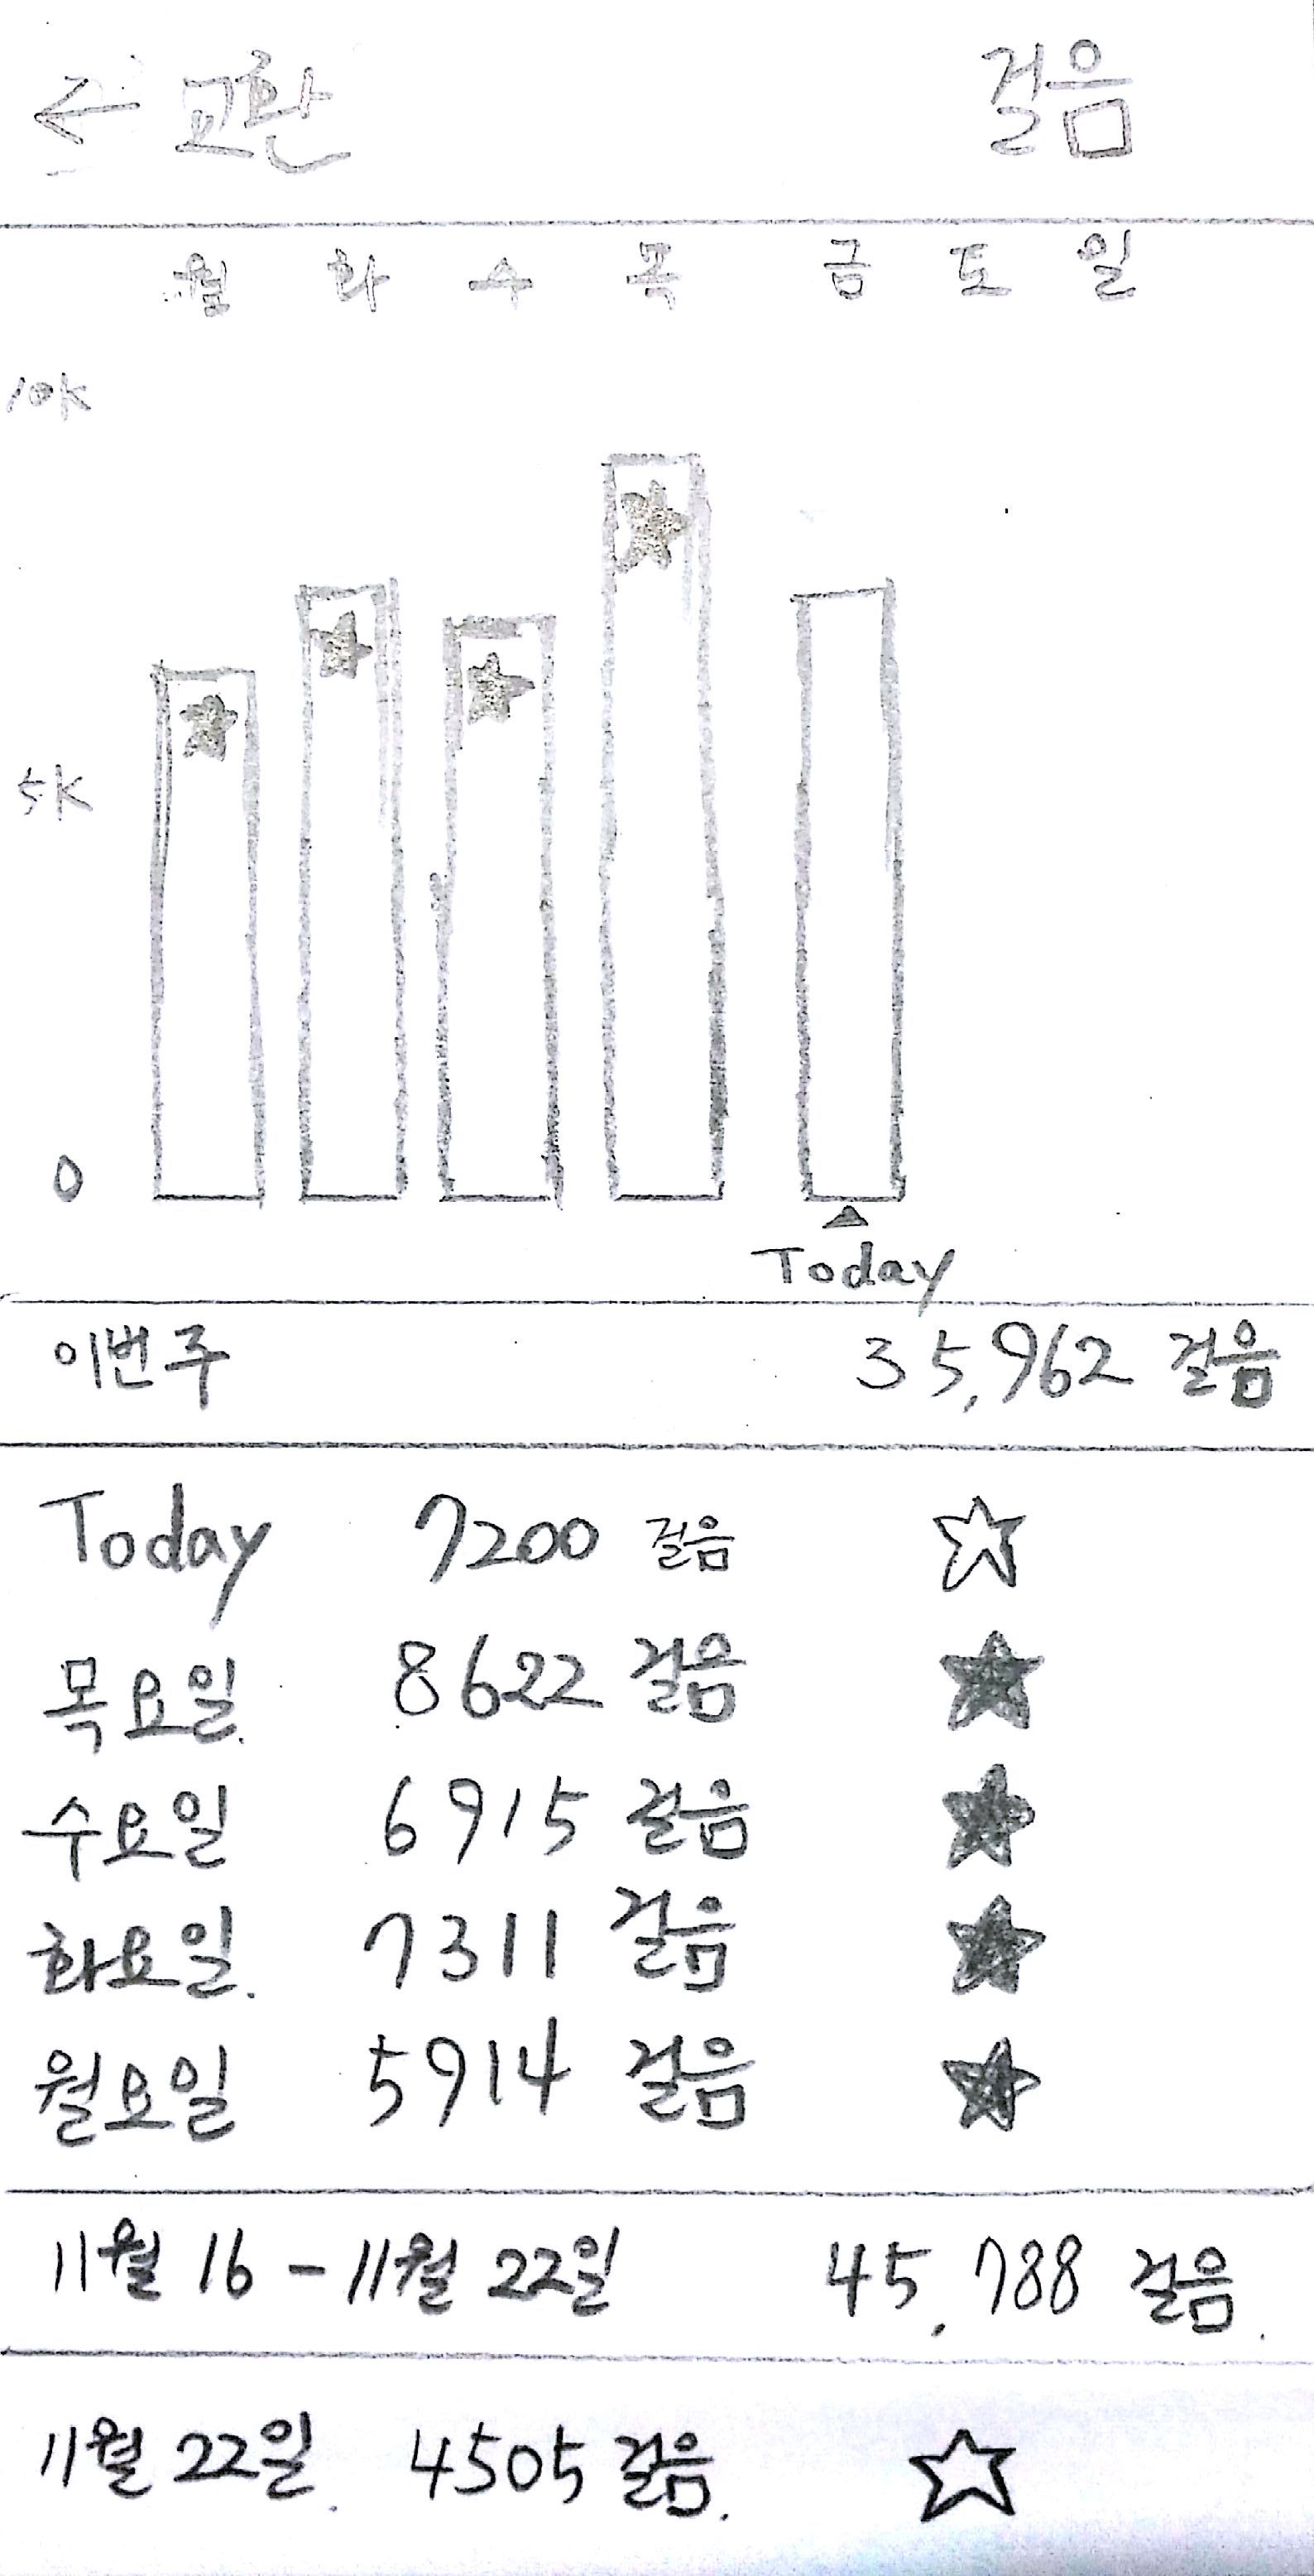 ← 교환 걸음
월 화 수 목 금 토 일
10K
5K
0
Today
이번주 35,962 걸음
Today 7200 걸음 ☆
목요일. 8622 걸음 ★
수요일 6915 걸음 ★
화요일. 7311 걸음 ★
월요일 5914 걸음 ★
11월 16 - 11월 22일 45,788 걸음.
11월 22일. 4505 걸음. ☆